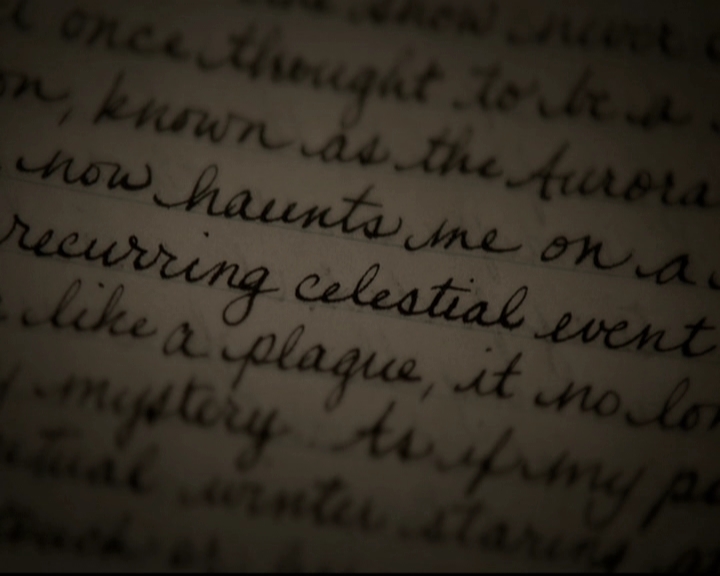 show never
once thought to be a
on, known as the Aurora
now haunts me on a
recurring celestial event
like a plague, it no lon
mystery. As if my pe
winter staring